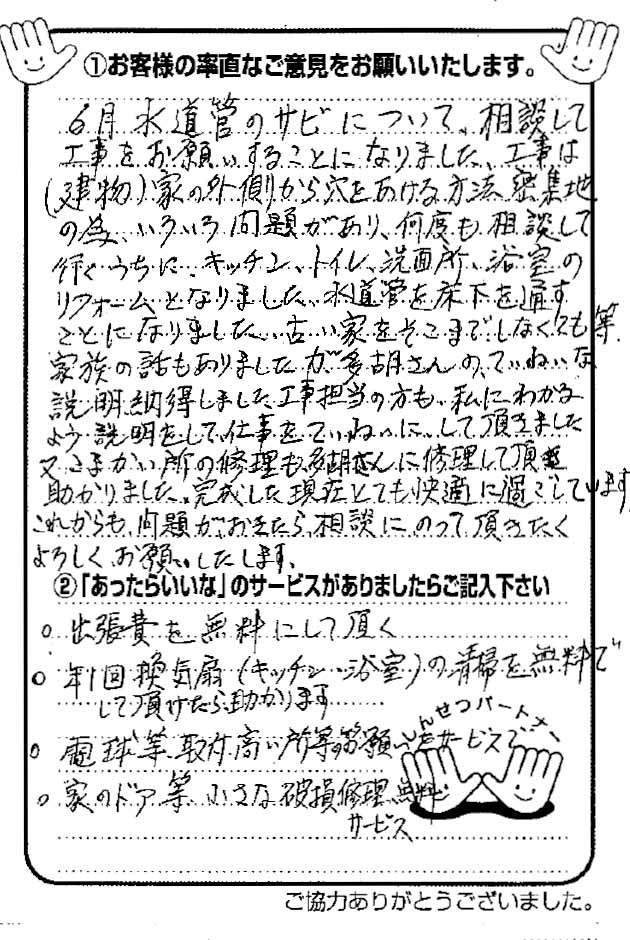 ①お客様の率直なご意見をお願いいたします。
6月水道管のサビについて、相談して
工事をお願いすることになりました、工事は
(建物)家の外側から穴をあける方法、密集地
の為、いろいろ問題があり、何度も相談して
行くうちに、キッチン、トイレ、洗面所、浴室の
リフォームとなりました、水道管を床下を通す
ことになりました、古い家をそこまでしなくても等、
家族の話もありましたが多胡さんの、ていねいな
説明、納得しました工事担当の方も、私にわかる
よう、説明をして、仕事をていねいに、して頂きました
又こまかい所の修理も多胡さんに修理して頂き
助かりました、完成した現在とても快適に過ごしています
これからも、問題が、おきたら、相談にのって頂きたく
よろしくお願いしたします、
②「あったらいいな」のサービスがありましたらご記入下さい
o 出張費を無料にして頂く
o 年1回換気扇(キッチン・浴室)の清掃を無料で
して頂けたら、助かります
o 電球等、取付、高い所等のお願いをサービスで
o 家のドア等 小さな破損修理無料
サービス
しんせつパートナー
ご協力ありがとうございました。